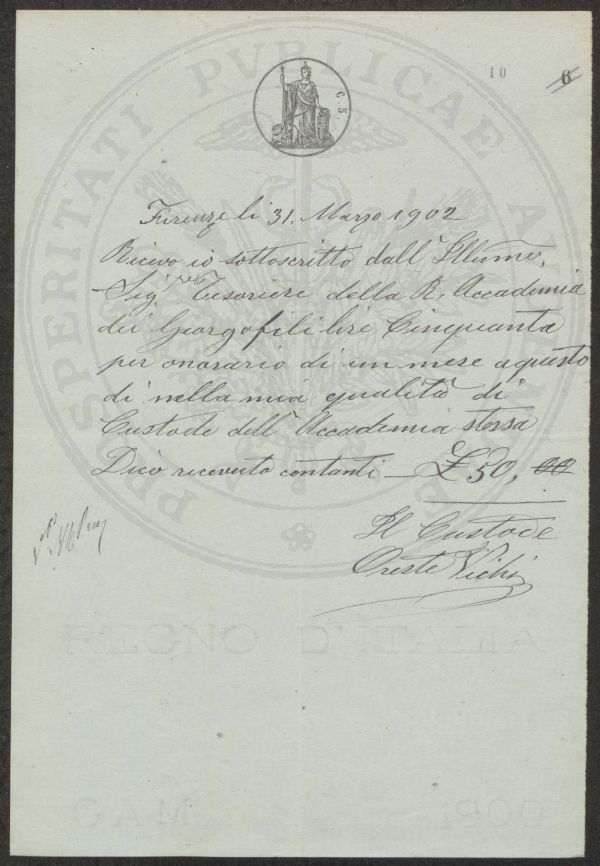 10 6
C. 5.
PROSPERITATI PVBLICAE AVGENDAE
Firenze li 31. Marzo 1902
Ricevo io sottoscritto dall' Illumo.
Sigr. Tesoriere della R. Accademia
dei Georgofili lire Cinquanta
per onorario di un mese a questo
di nella mia qualità di
Custode dell' Accademia stessa
Dico ricevuto contanti — £ 50, 00
Il Custode
Oreste Vichi
REGNO D'ITALIA